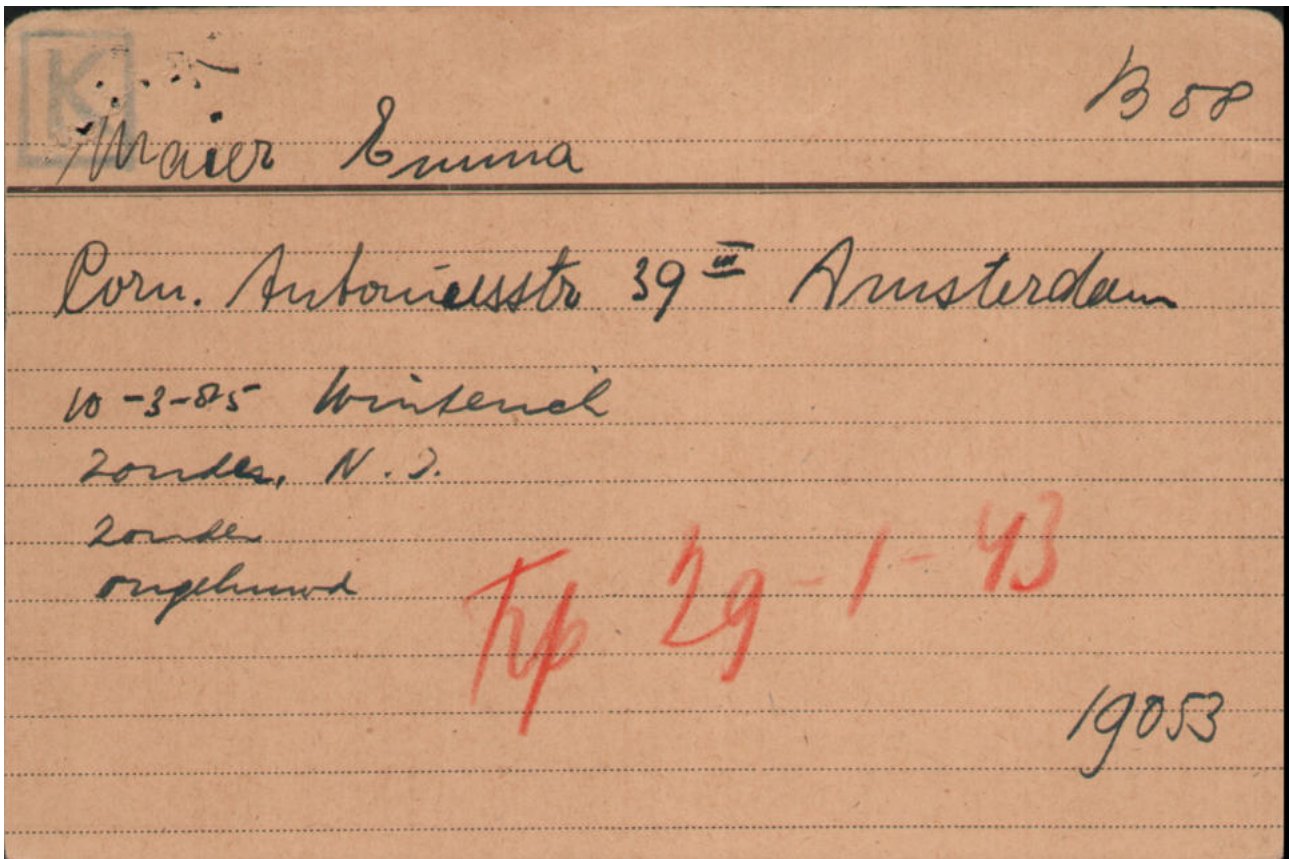 K
B 58
Maier Emma
Corn. Antoniesstr 39 III Amsterdam
10-3-85 Winterich
zonder, N.I.
zonder
ongehuwd
Trp 29-1-43
19053